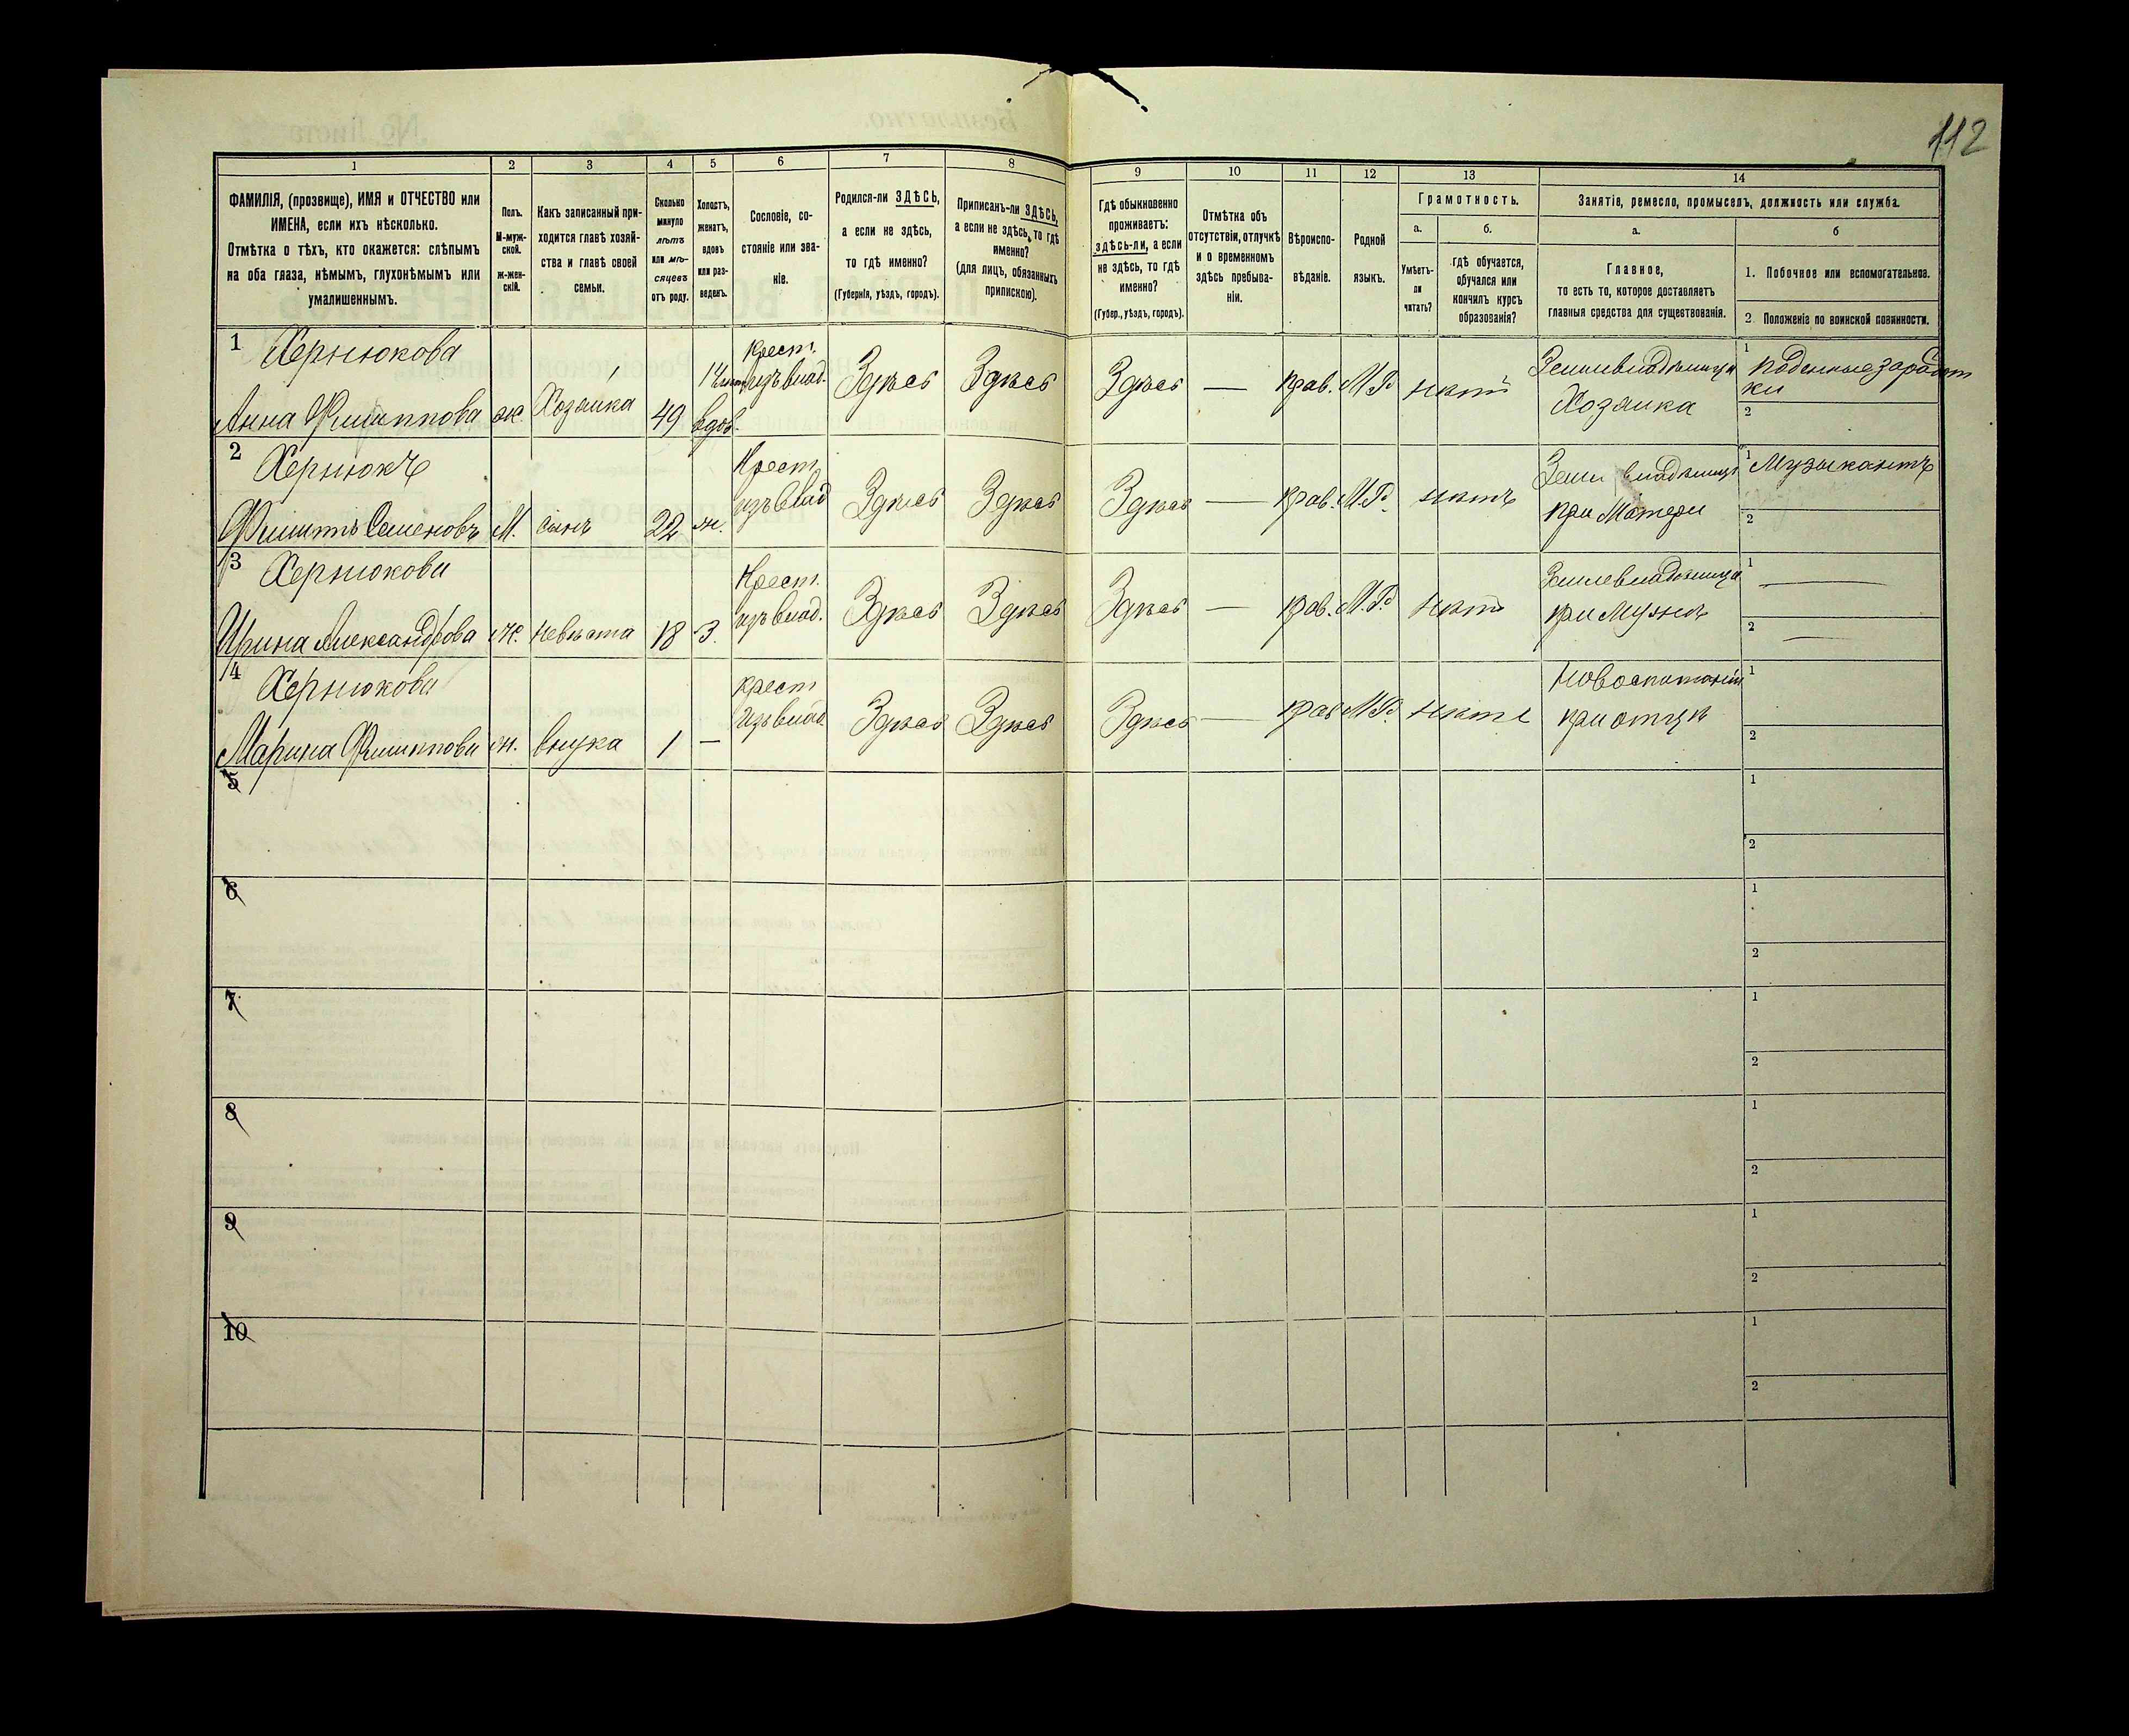 112
1
2
3
4
5
6
7
8
9
10
11
12
13
14
ФАМИЛІЯ, (прозвище), ИМЯ и ОТЧЕСТВО или
ИМЕНА, если ихъ нѣсколько.
Отмѣтка о тѣхъ, кто окажется: слѣпымъ
на оба глаза, нѣмымъ, глухонѣмымъ или
умалишеннымъ.
Полъ.
М-муж-
ской.
ж-жен-
скій.
Какъ записанный при-
ходится главѣ хозяй-
ства и главѣ своей
семьи.
Сколько
минуло
лѣтъ
или мѣ-
сяцевъ
отъ роду.
Холостъ,
женатъ,
вдовъ
или раз-
веденъ.
Сословіе, со-
стояніе или зва-
ніе.
Родился-ли ЗДѢСЬ,
а если не здѣсь,
то гдѣ именно?
(Губернія, уѣздъ, городъ).
Приписанъ-ли ЗДѢСЬ,
а если не здѣсь, то гдѣ
именно?
(для лицъ, обязанныхъ
припискою).
Гдѣ обыкновенно
проживаетъ:
здѣсь-ли, а если
не здѣсь, то гдѣ
именно?
(Губер., уѣздъ, городъ).
Отмѣтка объ
отсутствіи, отлучкѣ
и о временномъ
здѣсь пребыва-
ніи.
Вѣроиспо-
вѣданіе.
Родной
языкъ.
Грамотность.
а.
б.
Умѣетъ-
ли
читать?
гдѣ обучается,
обучался или
кончилъ курсъ
образованія?
Занятіе, ремесло, промыселъ, должность или служба.
а.
б
Главное,
то есть то, которое доставляетъ
главныя средства для существованія.
1. Побочное или вспомогательное.
2 Положеніе по воинской повинности.
1 Хернюкова
Анна Филиппова ж. Хозяйка 49 вдов. крест. изъ влад. Здѣсь Здѣсь Здѣсь — прав. М.Р. нѣтъ Землевладѣлица
Хозяйка
1 поденные заработ
ки
2
2 Хернюкъ
Филиппъ Семеновъ М. сынъ 22 ж. Крест. изъ влад Здѣсь Здѣсь Здѣсь — прав. М.Р. нѣтъ
при Матери
1 Музыкантъ
2
3 Хернюкова
Ирина Александрова Ж. невѣста 18 З. Крест. изъ влад. Здѣсь Здѣсь Здѣсь — прав. М.Р. нѣтъ Землевладѣлица
при Мужѣ
1 —
2 —
4 Хернюкова
Марина Филиппова ж. внука 1 — крест изъ влад Здѣсь Здѣсь Здѣсь — прав М.Р. нѣтъ
при отцѣ
1
2
5
1
2
6
1
2
7
1
2
8
1
2
9
1
2
10
1
2